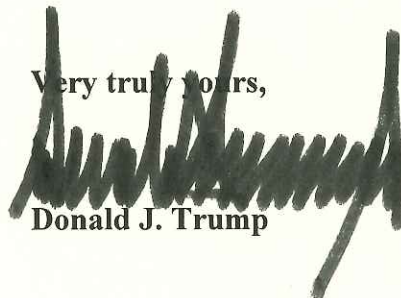 Very truly yours,
Donald J. Trump